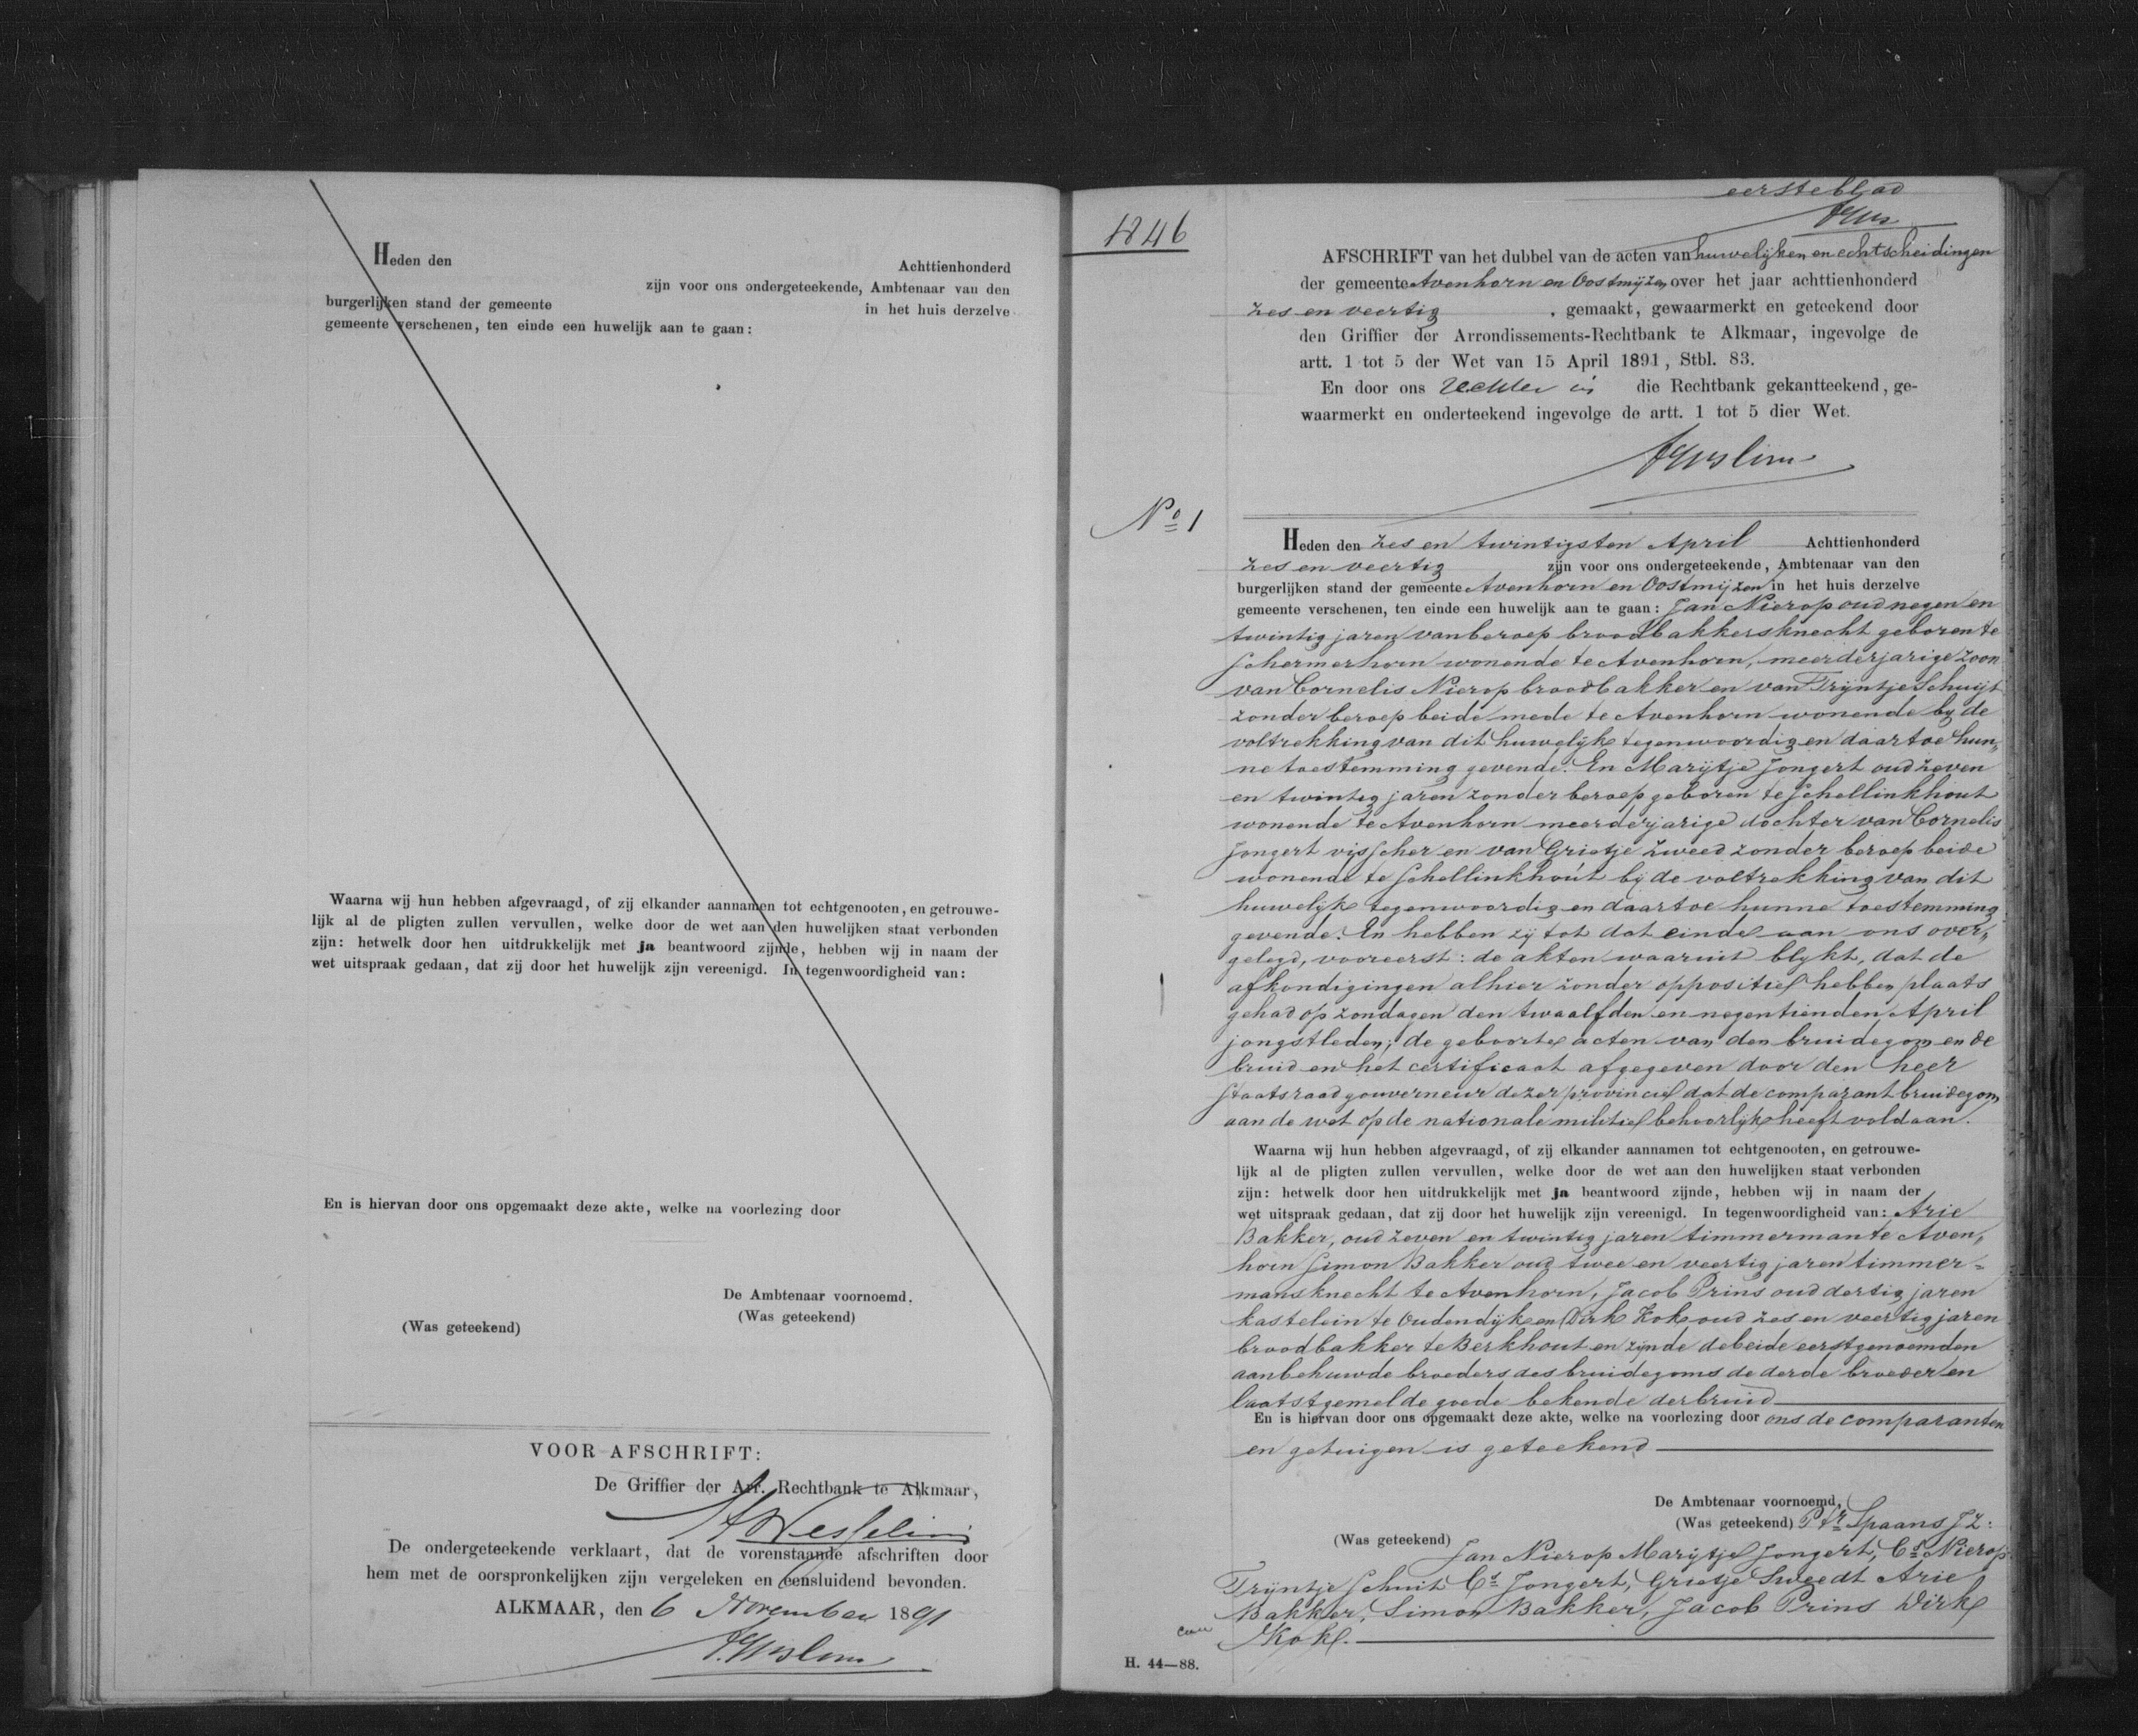 Heden den Achttienhonderd
zijn voor ons ondergeteekende, Ambtenaar van den
burgerlijken stand der gemeente in het huis derzelve
gemeente verschenen, ten einde een huwelijk aan te gaan:
Waarna wij hun hebben afgevraagd, of zij elkander aannamen tot echtgenooten, en getrouwe-
lijk al de pligten zullen vervullen, welke door de wet aan den huwelijken staat verbonden
zijn: hetwelk door hen uitdrukkelijk met ja beantwoord zijnde, hebben wij in naam der
wet uitspraak gedaan, dat zij door het huwelijk zijn vereenigd. In tegenwoordigheid van:
En is hiervan door ons opgemaakt deze akte, welke na voorlezing door
De Ambtenaar voornoemd.
(Was geteekend)
(Was geteekend)
VOOR AFSCHRIFT:
De Griffier der Arr. Rechtbank te Alkmaar,
De ondergeteekende verklaart, dat de vorenstaande afschriften door
hem met de oorspronkelijken zijn vergeleken en eensluidend bevonden.
ALKMAAR, den 6 November 1891
eerste blad
1846
AFSCHRIFT van het dubbel van de acten van huwelijken en echtscheidingen
der gemeente Avenhorn en Oostmijzen over het jaar achttienhonderd
zes en veertig, gemaakt, gewaarmerkt en geteekend door
den Griffier der Arrondissements-Rechtbank te Alkmaar, ingevolge de
artt. 1 tot 5 der Wet van 15 April 1891, Stbl. 83.
En door ons Rechter in die Rechtbank gekantteekend, ge-
waarmerkt en onderteekend ingevolge de artt. 1 tot 5 dier Wet.
No 1
Heden den zes en twintigsten April Achttienhonderd
zes en veertig zijn voor ons ondergeteekende, Ambtenaar van den
burgerlijken stand der gemeente Avenhorn en Oostmijzen in het huis derzelve
gemeente verschenen, ten einde een huwelijk aan te gaan: Jan Nierop oud negen en
twintig jaren van beroep broodbakkersknecht geboren te
Schermerhorn wonende te Avenhorn, meerderjarige zoon
van Cornelis Nierop broodbakker en van Trijntje Schuijt
zonder beroep beide mede te Avenhorn wonende bij de
voltrekking van dit huwelijk tegenwoordig en daartoe hun„
ne toestemming gevende. En Marijtje Jongert oud zeven
en twintig jaren zonder beroep geboren te Schellinkhout
wonende te Avenhorn meerderjarige dochter van Cornelis
Jongert visscher en van Grietje Zweed zonder beroep beide
wonende te Schellinkhout bij de voltrekking van dit
huwelijk tegenwoordig en daartoe hunne toestemming
gevende. En hebben zij tot dat einde aan ons over„
gelegd, vooreerst: de akten waaruit blykt, dat de
afkondigingen alhier zonder oppositie hebben plaats
gehad op zondagen den twaalfden en negentienden April
jongstleden; de geboorte acten van den bruidegom en de
bruid en het certificaat afgegeven door den heer
Staatsraad gouverneur dezer provincie dat de comparant bruidegom
aan de wet op de nationale militie behoorlijk heeft voldaan.
Waarna wij hun hebben afgevraagd, of zij elkander aannamen tot echtgenooten, en getrouwe-
lijk al de pligten zullen vervullen, welke door de wet aan den huwelijken staat verbonden
zijn: hetwelk door hen uitdrukkelijk met ja beantwoord zijnde, hebben wij in naam der
wet uitspraak gedaan, dat zij door het huwelijk zijn vereenigd. In tegenwoordigheid van: Arie
Bakker, oud zeven en twintig jaren timmerman te Aven„
horn Simon Bakker oud twee en veertig jaren timmer=
mansknecht te Avenhorn, Jacob Prins oud dertig jaren
kastelein te Oudendijk en Dirk Kok oud zes en veertig jaren
broodbakker te Berkhout en zijnde de beide eerstgenoemden
aanbehuwde broeders des bruidegoms de derde broeder en
laatstgemelde goede bekende der bruid
En is hiervan door ons opgemaakt deze akte, welke na voorlezing door ons de comparanten
en getuigen is geteekend
De Ambtenaar voornoemd,
(Was geteekend) Ptr Spaans Jz:
(Was geteekend) Jan Nierop Marijtje Jongert, Cs Nierop
Trijntje Schuit Cs Jongert, Grietje Sweedt Arie
Bakker, Simon Bakker, Jacob Prins Dirk
Kok.
H. 44—88.